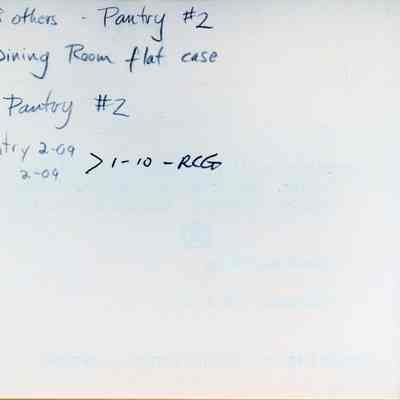 others - Pantry #2
Dining Room flat case
Pantry #2
ntry 2-09
2-09 > 1-10 - RCG